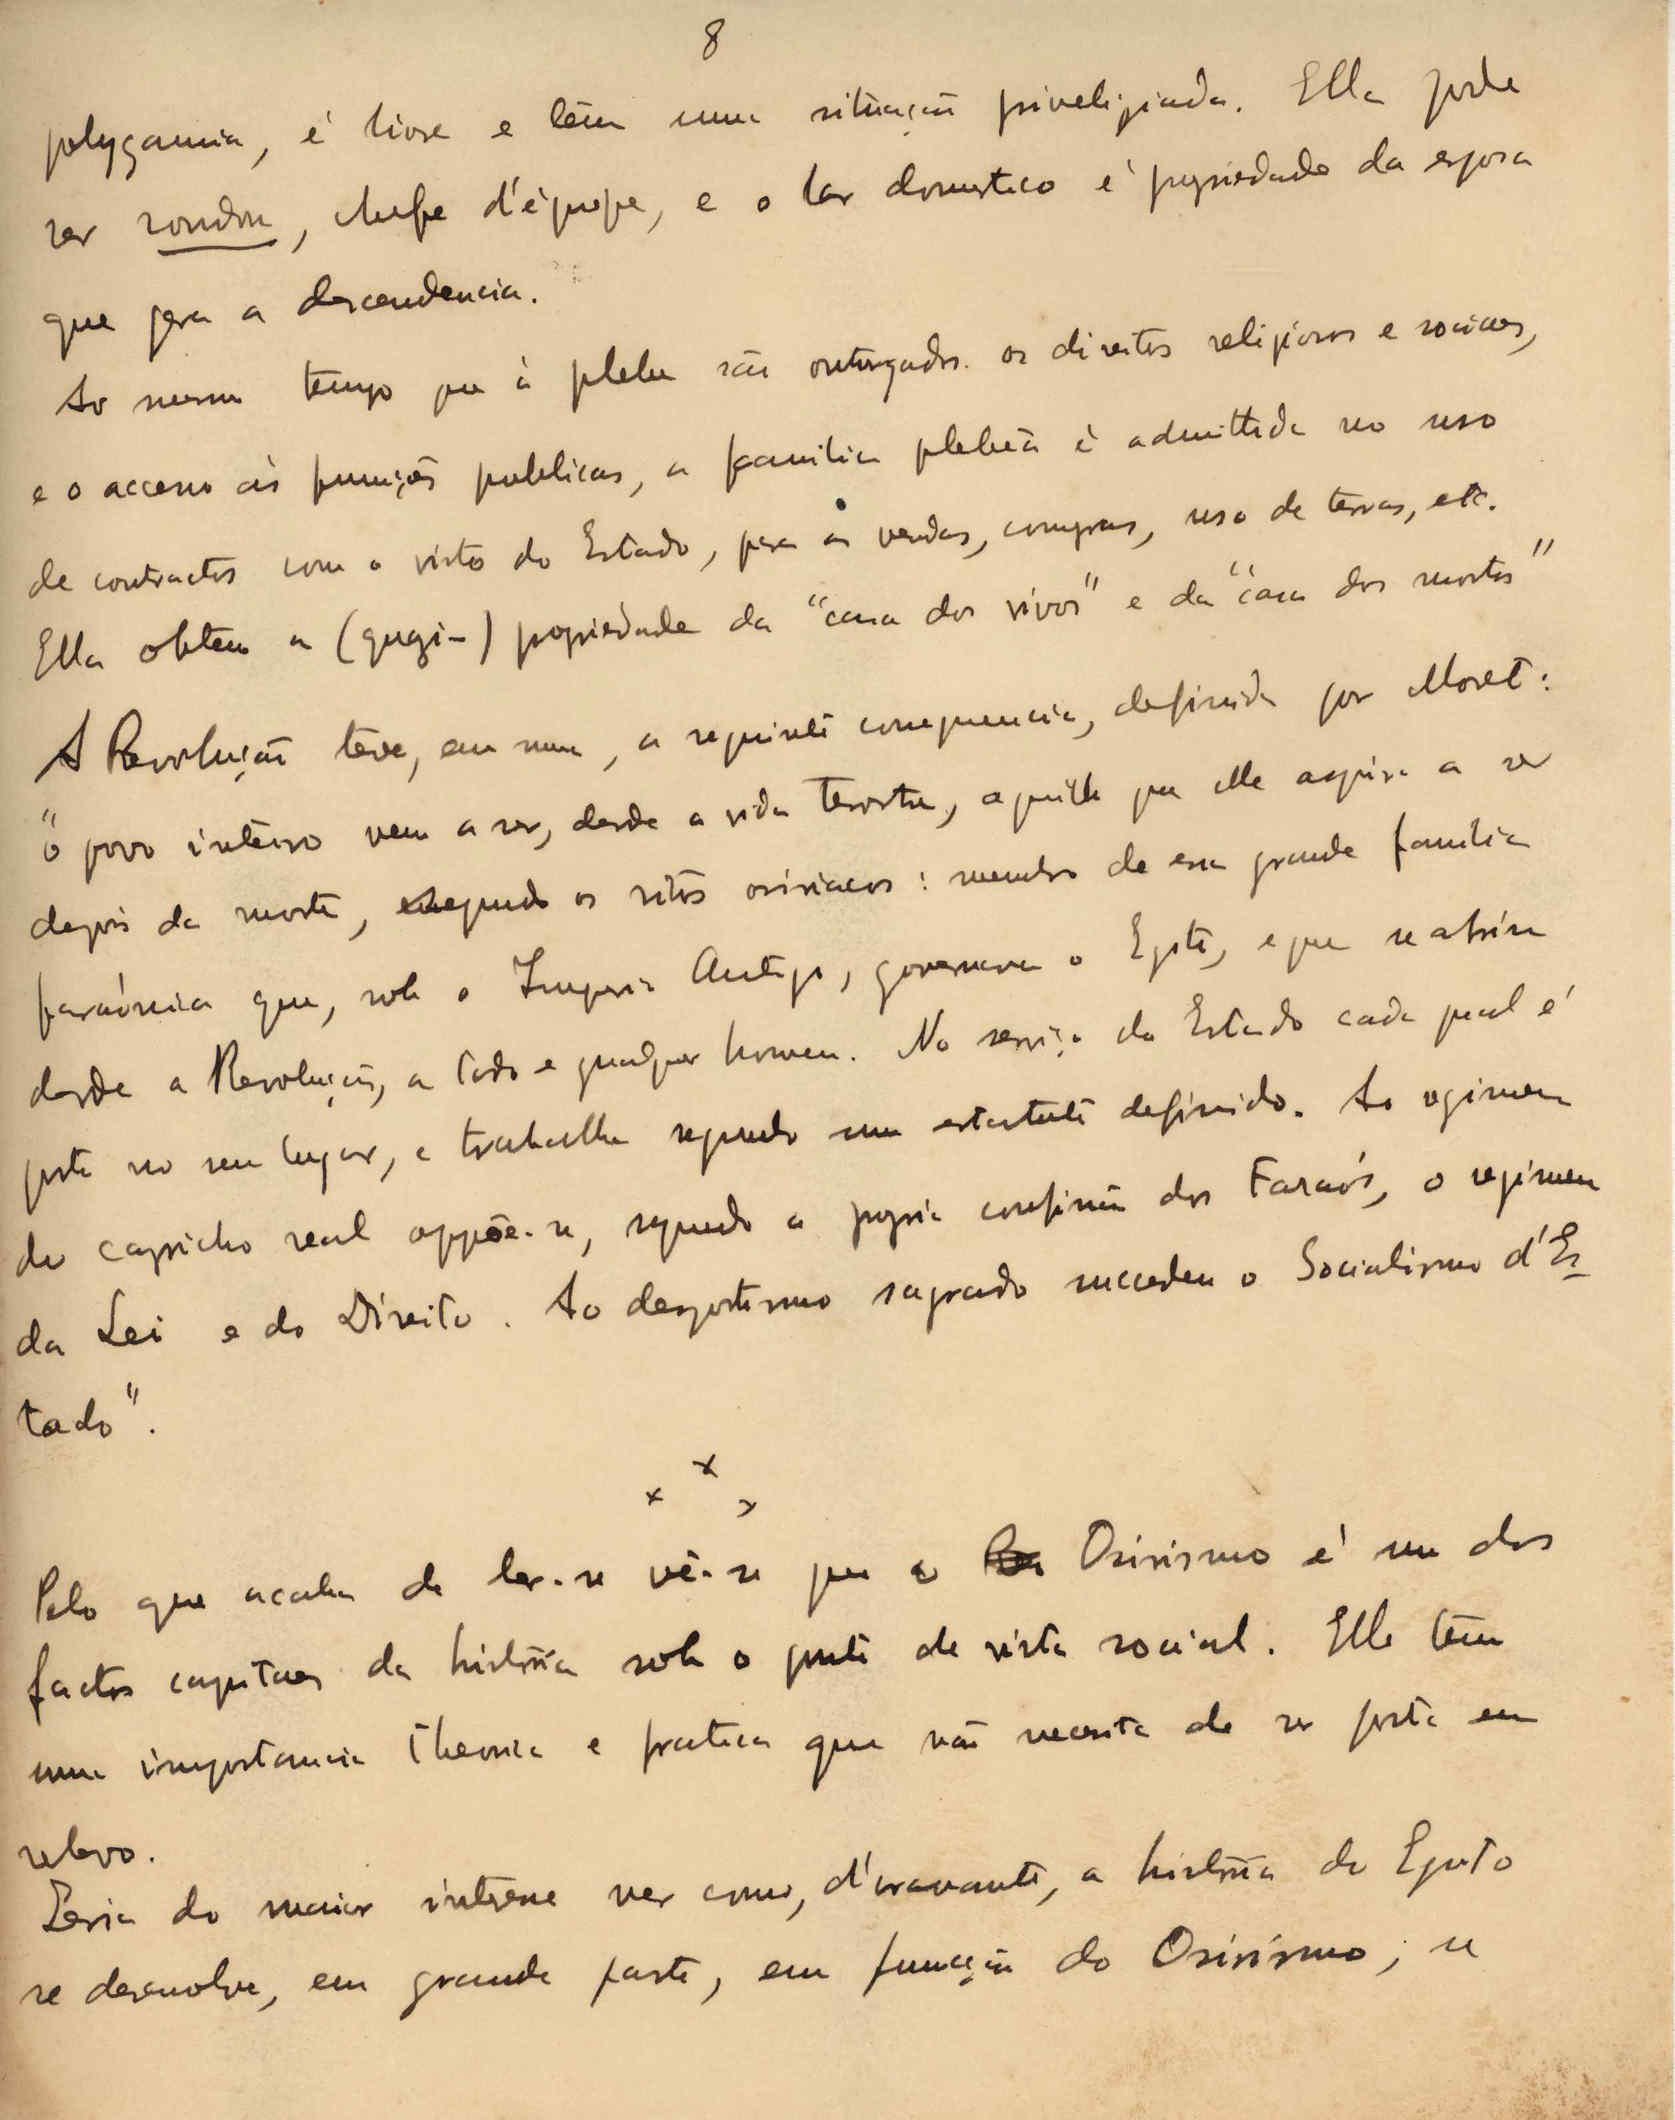 8
polygamia, é livre e têm uma situação priveligiada. Ella pode
ser rondon, chefe d'équipe, e o lar domestico é propriedade da esposa
que gera a descendencia.
Ao mesmo tempo que á plebe são outorgados os direitos religiosos e sociaes,
e o accesso ás funções publicas, a familia plebêa é admittida no uso
de contractos com o visto do Estado, para as vendas, compras, uso de terras, etc.
Ella obtem a (quasi-) propriedade da "casa dos vivos" e da "casa dos mortos"
A Revolução teve, em suma, a seguinte consequencia, definida por Moret:
"o povo inteiro vem a ser, desde a vida terrestre, aquillo que elle aspira a ser
depois da morte, segundo os ritos osiriacos: membro de essa grande familia
faraónica que, sob o Imperio Antigo, governava o Egito, e que se abriu
desde a Revolução, a todo e qualquer homem. No serviço do Estado cada qual é
posto no seu lugar, e trabalha segundo um estatuto definido. Ao regimen
do capricho real oppõe-se, segundo a propria confissão dos Faraós, o regimen
da Lei e do Direito. Ao despotismo sagrado succedeu o Socialismo d'Es
tado".
x x x
Pelo que acaba de ler-se vê-se que o Osirismo é um dos
factos capitaes da história sob o ponto de vista social. Elle têm
uma importancia theorica e pratica que não necessita de ser posta em
relevo.
Seria do maior interesse ver como, d'oravante, a história do Egito
se desenvolve, em grande parte, em função do Osirismo; se